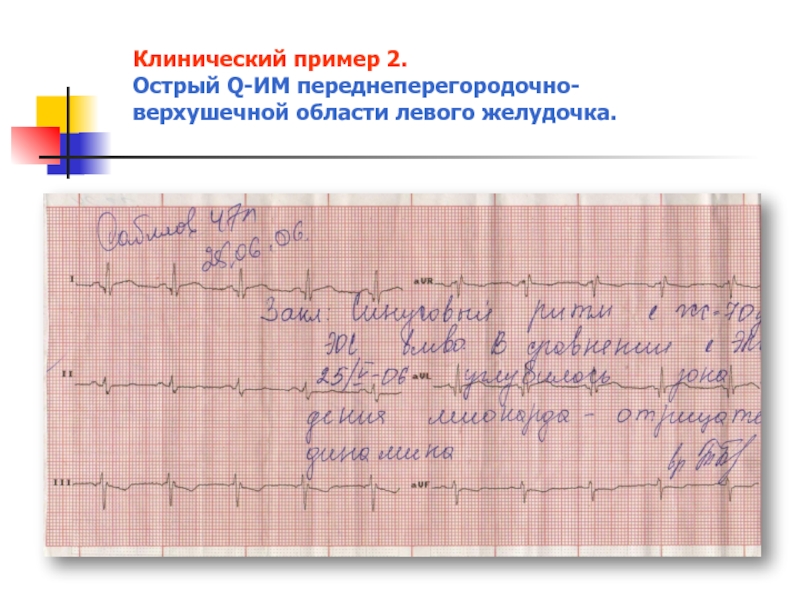 Клинический пример 2.
Острый Q-ИМ переднеперегородочно-
верхушечной области левого желудочка.
47л
26.06.06.
I
aVR
Закл: Синусовый ритм с чсс-70
ЭОС влево. В сравнении с ЭК
II
25/V-06
aVL
углубилось зона
дения миокарда - отрицате
динамика
вр
III
aVF